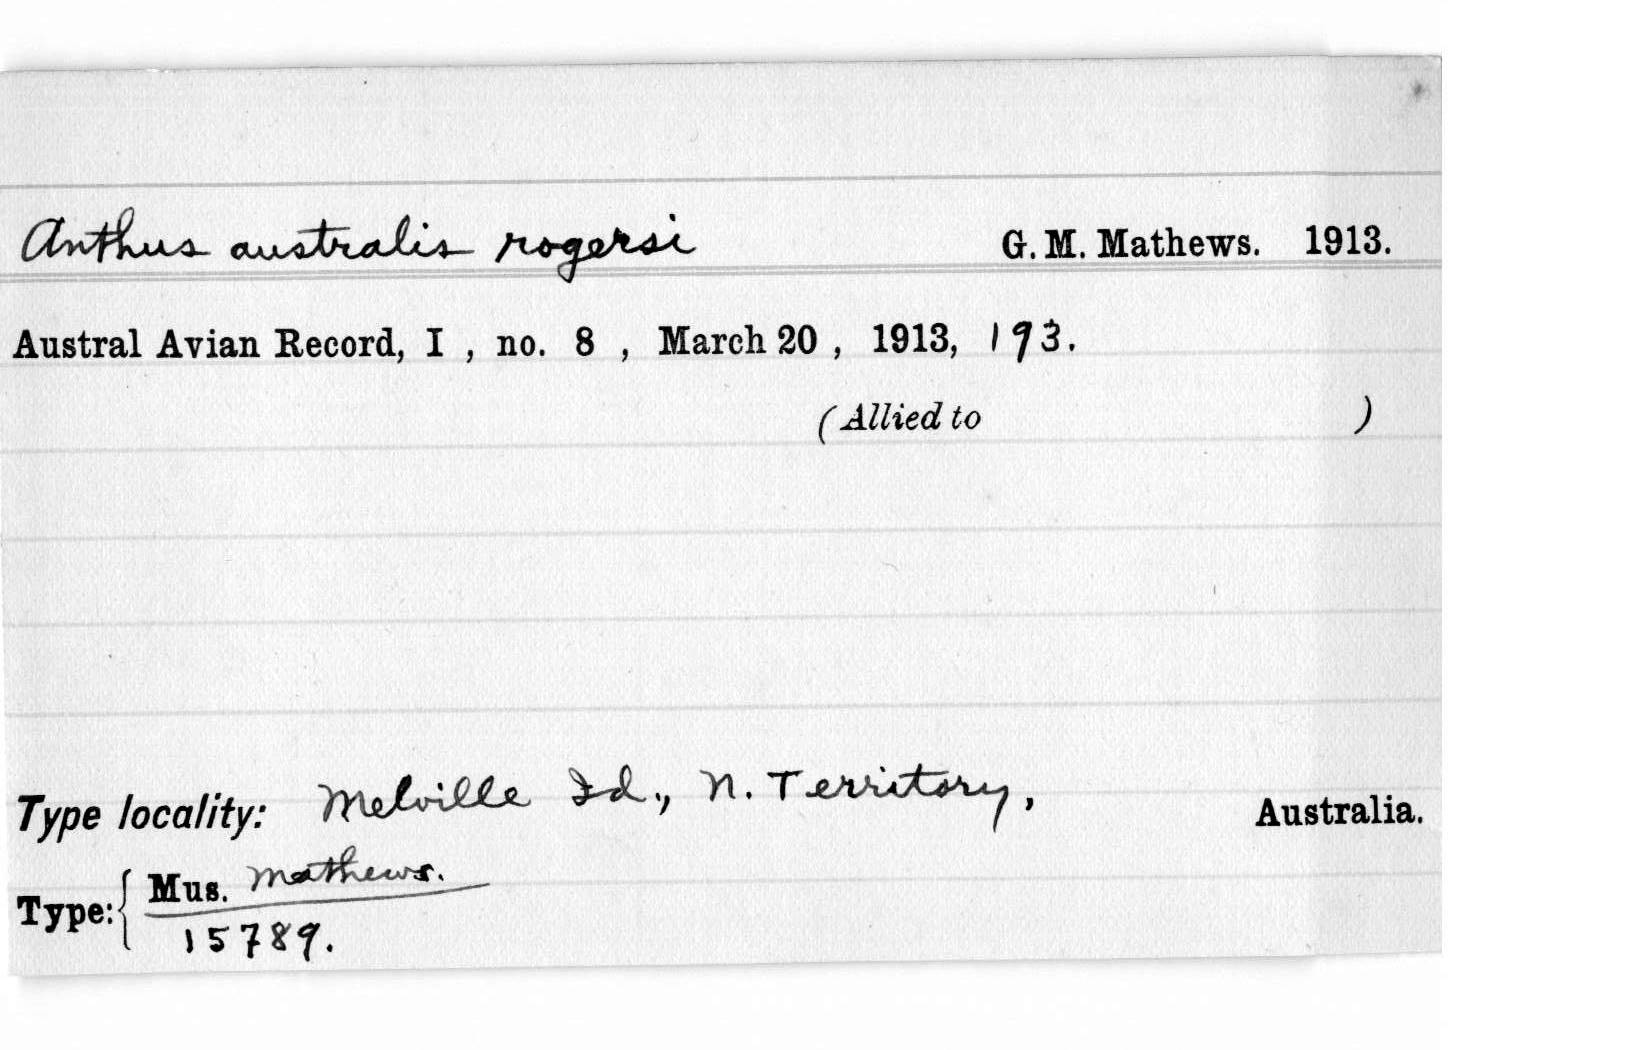 Anthus australis rogersi G. M. Mathews. 1913.
Austral Avian Record, I , no. 8 , March 20 , 1913, 193.
(Allied to )
Type locality: Melville Id., N. Territory, Australia.
Type: { Mus. Mathews.
15789.